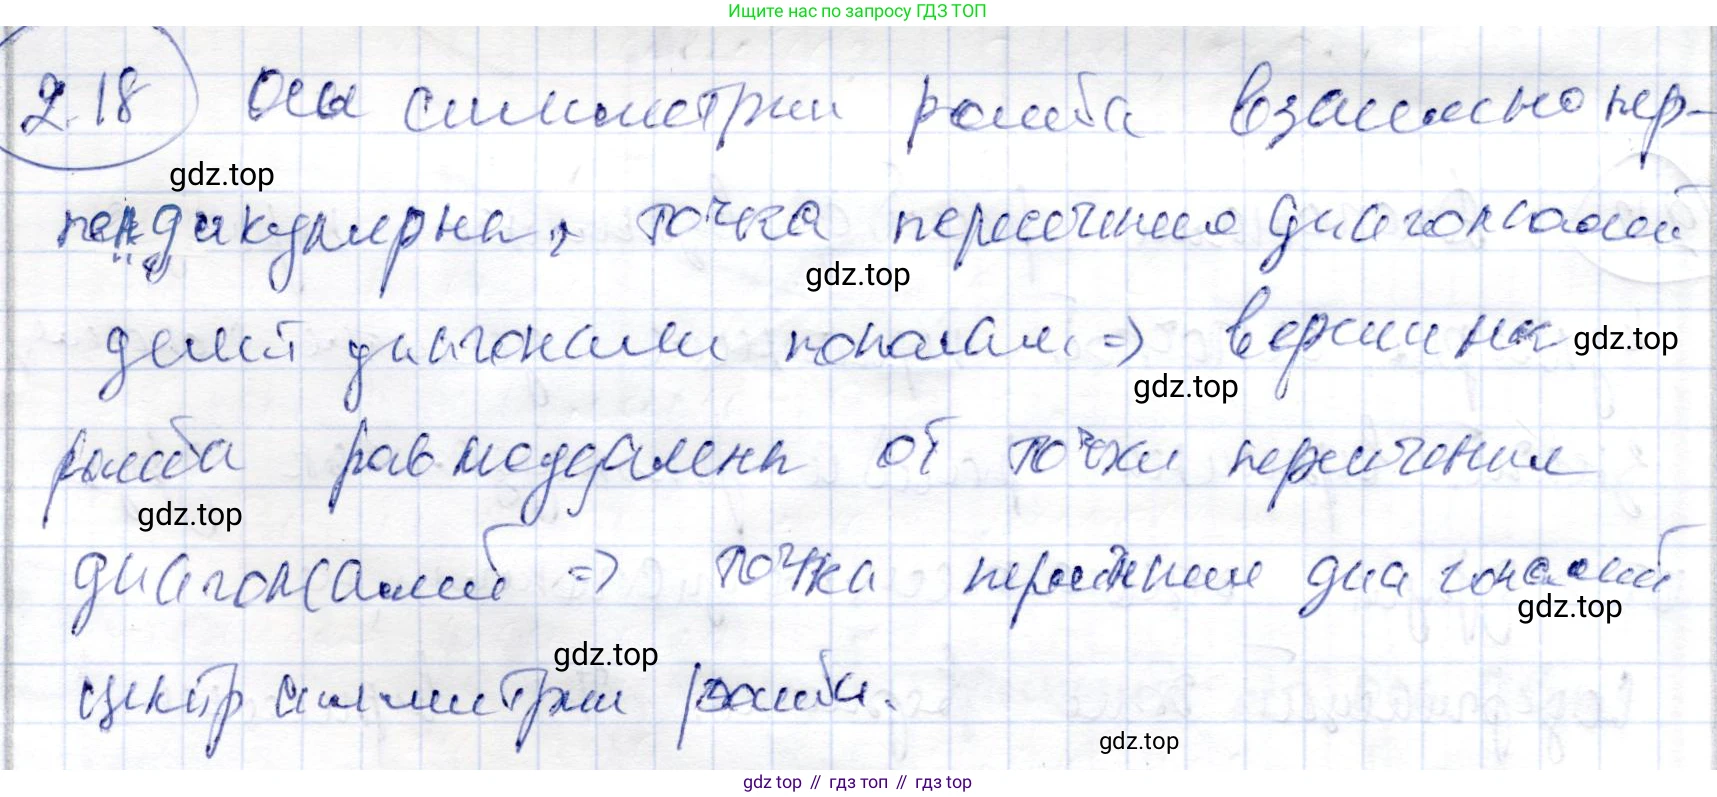 Ищите нас по запросу ГДЗ ТОП
2.18 Оси симметрии ромба взаимно пер-
gdz.top
пендикулярны, точка пересечения диагоналей
gdz.top
делит диагонали пополам => вершины
gdz.top
gdz.top
ромба равноудалены от точки пересечения
gdz.top
диагоналей => точка пересечения диагоналей
gdz.top
gdz.top
центр симметрии ромба.
gdz.top
gdz top // гдз топ // гдз top